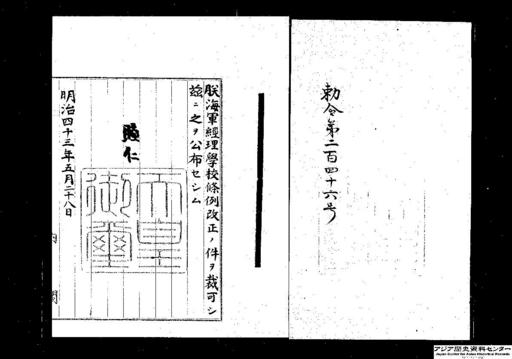 勅令第二百四十六号
朕海軍經理學校條例改正ノ件ヲ裁可シ
茲ニ之ヲ公布セシム
睦仁
天皇
御璽
明治四十三年五月二十八日
内閣
アジア歴史資料センター
Japan Center for Asian Historical Records